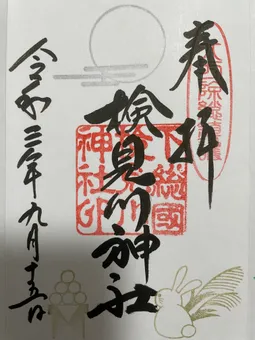 奉拝
検見川神社
下総國
検見川
神社印
令和二年九月十五日